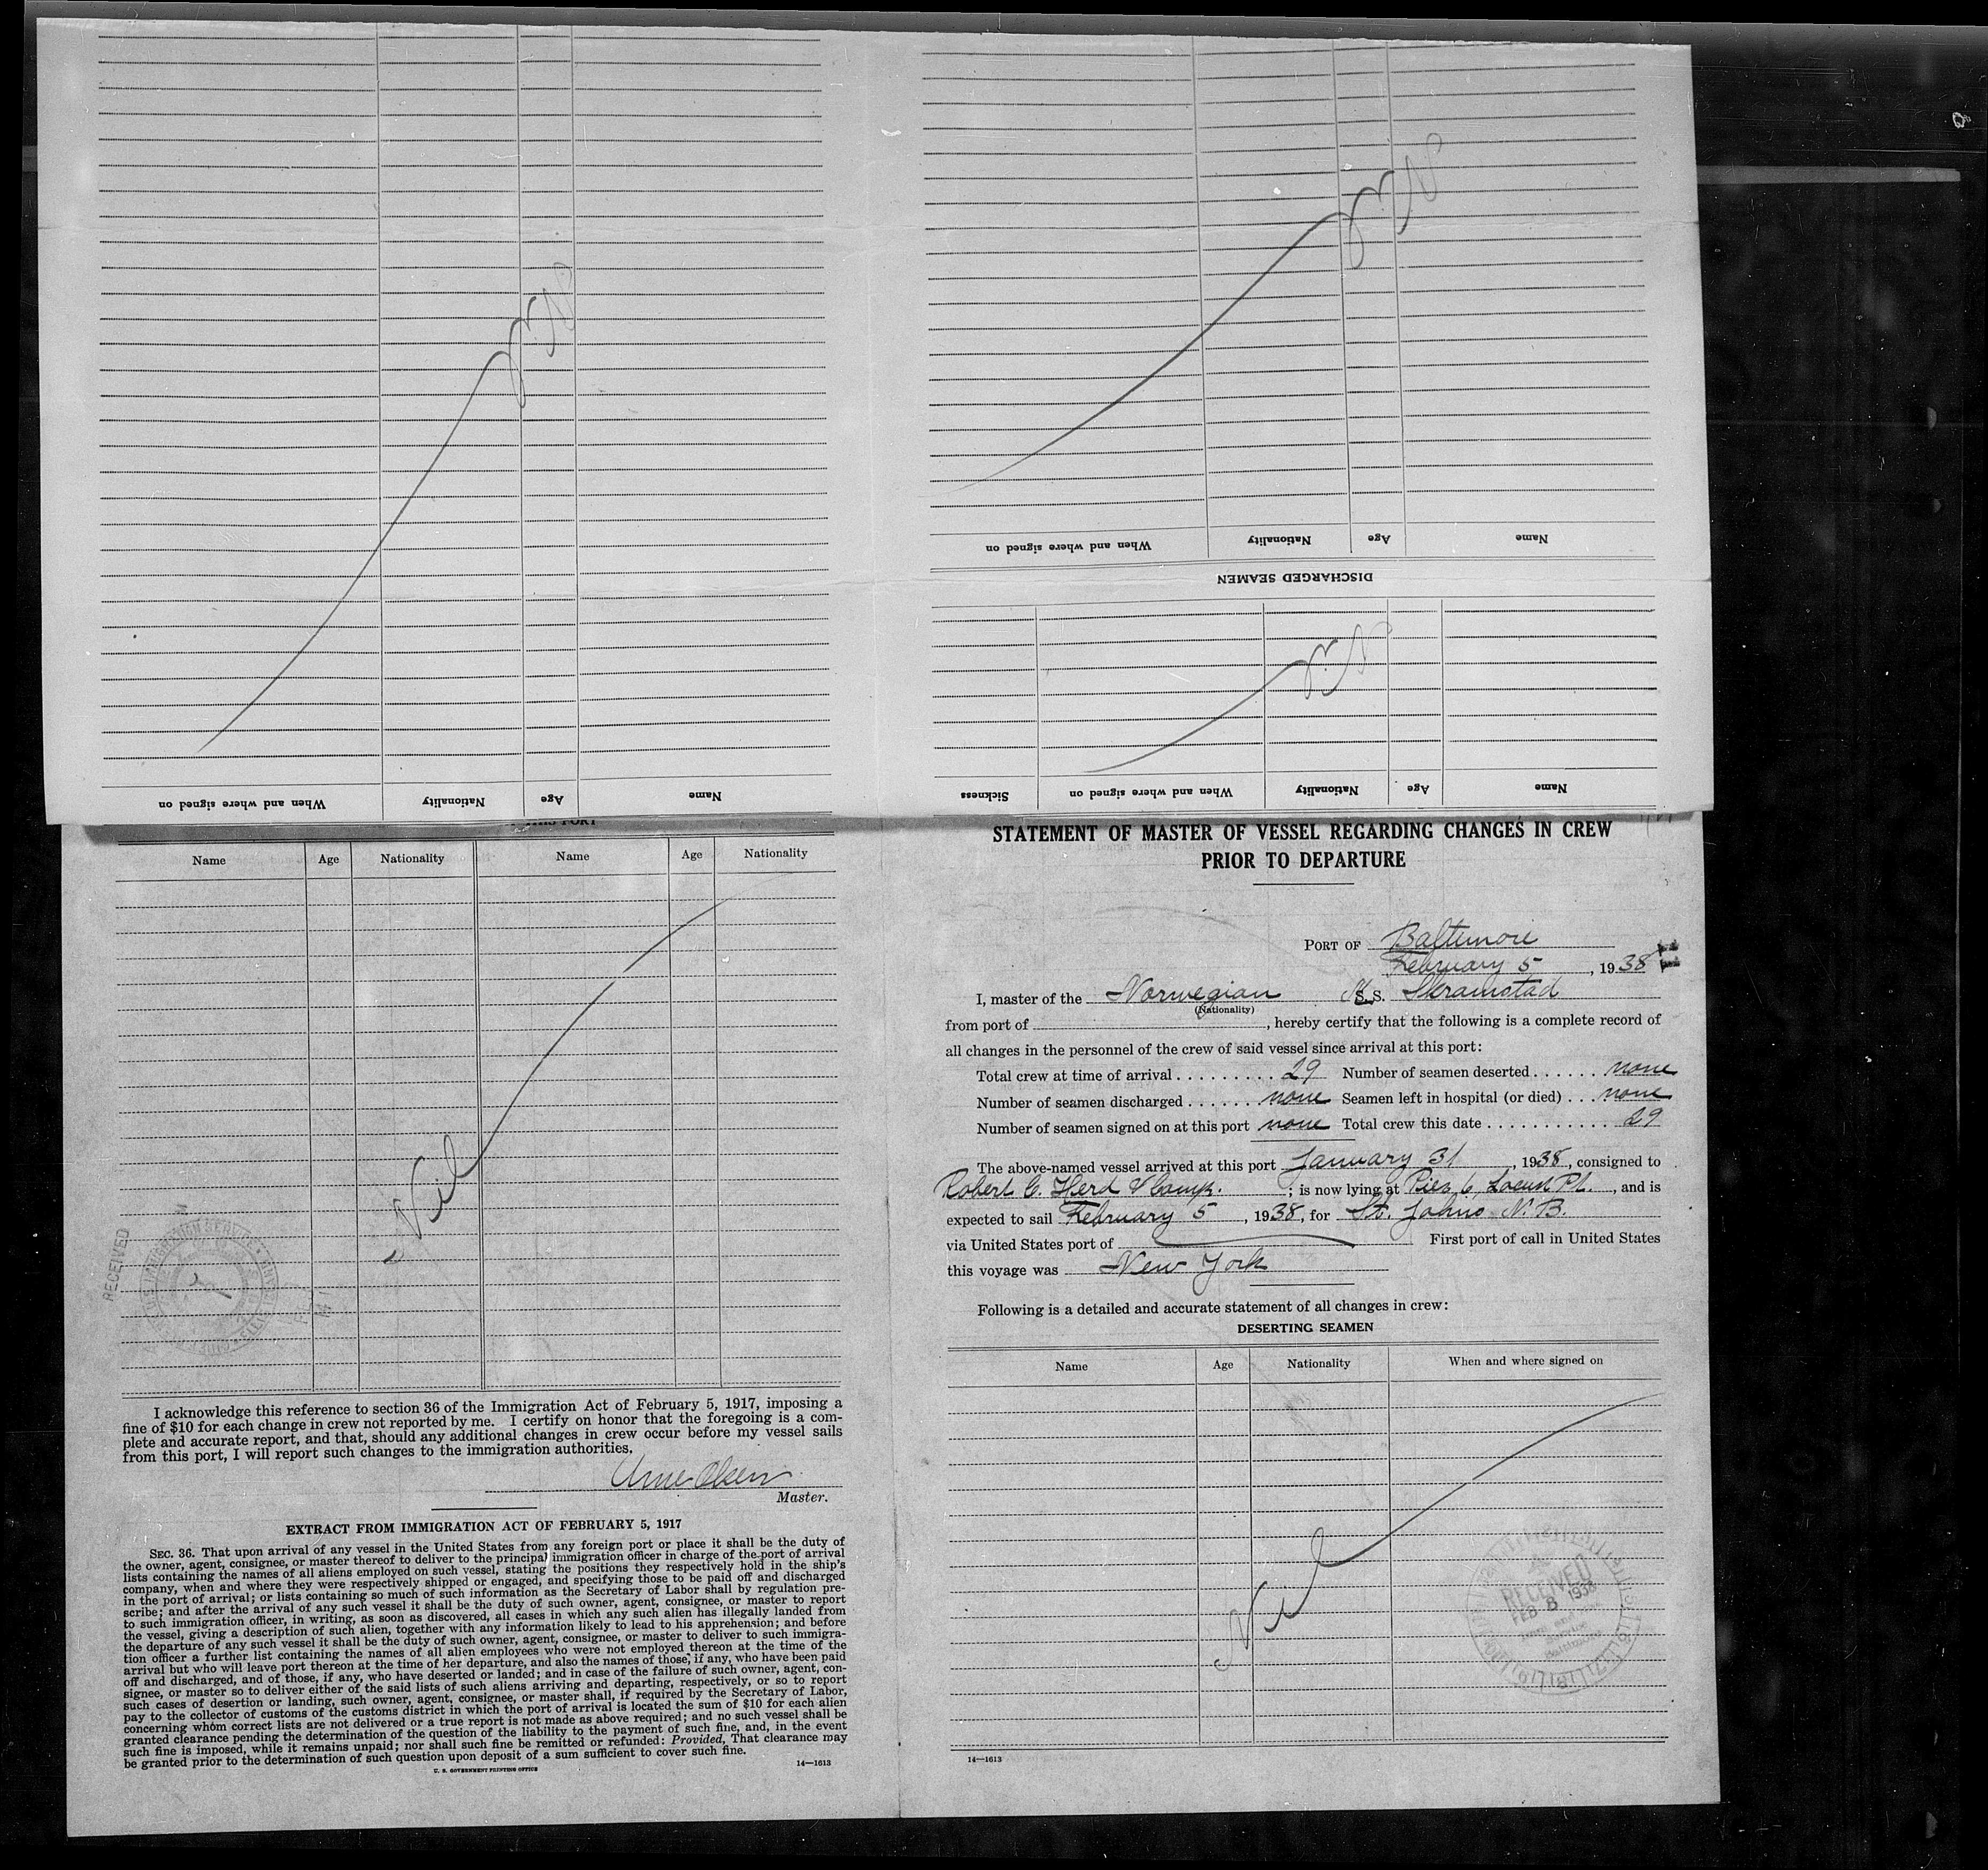 Nil
When and where signed on Nationality Age Name
Nil
Name Age Nationality When and where signed on
DISCHARGED SEAMEN
Nil
Name Age Nationality When and where signed on Sickness
THIS PORT
Name Age Nationality Name Age Nationality
Nil
RECEIVED
I acknowledge this reference to section 36 of the Immigration Act of February 5, 1917, imposing a
fine of $10 for each change in crew not reported by me. I certify on honor that the foregoing is a com-
plete and accurate report, and that, should any additional changes in crew occur before my vessel sails
from this port, I will report such changes to the immigration authorities.
Arne Olsen
Master.
EXTRACT FROM IMMIGRATION ACT OF FEBRUARY 5, 1917
SEC. 36. That upon arrival of any vessel in the United States from any foreign port or place it shall be the duty of
the owner, agent, consignee, or master thereof to deliver to the principal immigration officer in charge of the port of arrival
lists containing the names of all aliens employed on such vessel, stating the positions they respectively hold in the ship's
company, when and where they were respectively shipped or engaged, and specifying those to be paid off and discharged
in the port of arrival; or lists containing so much of such information as the Secretary of Labor shall by regulation pre-
scribe; and after the arrival of any such vessel it shall be the duty of such owner, agent, consignee, or master to report
to such immigration officer, in writing, as soon as discovered, all cases in which any such alien has illegally landed from
the vessel, giving a description of such alien, together with any information likely to lead to his apprehension; and before
the departure of any such vessel it shall be the duty of such owner, agent, consignee, or master to deliver to such immigra-
tion officer a further list containing the names of all alien employees who were not employed thereon at the time of the
arrival but who will leave port thereon at the time of her departure, and also the names of those, if any, who have been paid
off and discharged, and of those, if any, who have deserted or landed; and in case of the failure of such owner, agent, con-
signee, or master so to deliver either of the said lists of such aliens arriving and departing, respectively, or so to report
such cases of desertion or landing, such owner, agent, consignee, or master shall, if required by the Secretary of Labor,
pay to the collector of customs of the customs district in which the port of arrival is located the sum of $10 for each alien
concerning whom correct lists are not delivered or a true report is not made as above required; and no such vessel shall be
granted clearance pending the determination of the question of the liability to the payment of such fine, and, in the event
such fine is imposed, while it remains unpaid; nor shall such fine be remitted or refunded: Provided, That clearance may
be granted prior to the determination of such question upon deposit of a sum sufficient to cover such fine.
U. S. GOVERNMENT PRINTING OFFICE 14—1613
STATEMENT OF MASTER OF VESSEL REGARDING CHANGES IN CREW
PRIOR TO DEPARTURE
PORT OF Baltimore
February 5, 1938
I, master of the Norwegian S. S. Skramstad
(Nationality)
from port of , hereby certify that the following is a complete record of
all changes in the personnel of the crew of said vessel since arrival at this port:
Total crew at time of arrival 29 Number of seamen deserted none
Number of seamen discharged none Seamen left in hospital (or died) none
Number of seamen signed on at this port none Total crew this date 29
The above-named vessel arrived at this port January 31, 1938, consigned to
Robert C. Herd & Comp. ; is now lying at Pier 6, Locust Pt. , and is
expected to sail February 5, 1938, for St. Johns N. B.
via United States port of First port of call in United States
this voyage was New York
Following is a detailed and accurate statement of all changes in crew:
DESERTING SEAMEN
Name Age Nationality When and where signed on
Nil
RECEIVED
FEB 8 1938
Baltimore
14—1613